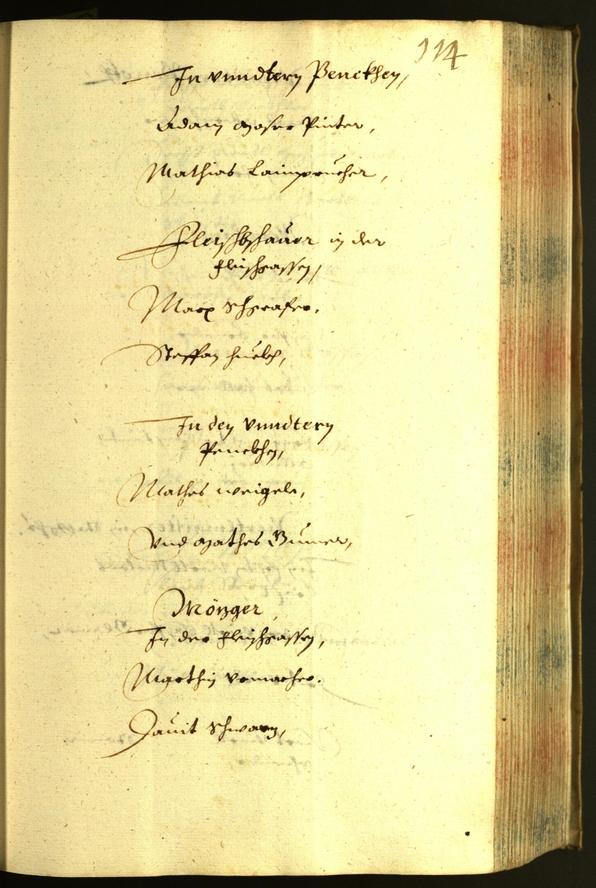 114
In vnndtern Penckhen,
Adam Moser Pinter,
Mathias Lainprucher,
Fleischbschauer in der
fleischgassen,
Marx Schgrafer.
Steffan
In den vnndtern
Penckhen,
Mathes weigele,
Vnd Mathes
Mözger,
In der fleischgassen,
Marthin
Dauit Schwarz,